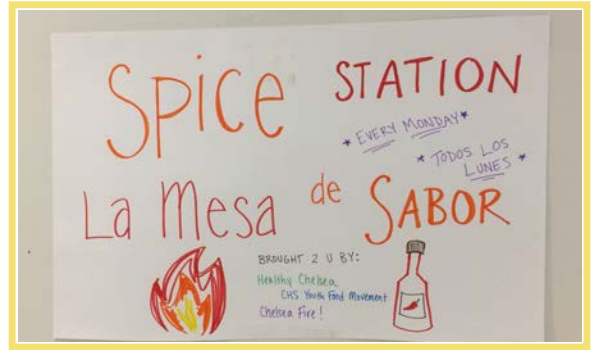 SPICE STATION
* EVERY MONDAY *
* TODOS LOS
LUNES *
La Mesa de SABOR
BROUGHT 2 U BY:
Healthy Chelsea
CHS Youth Food Movement
Chelsea Fire!